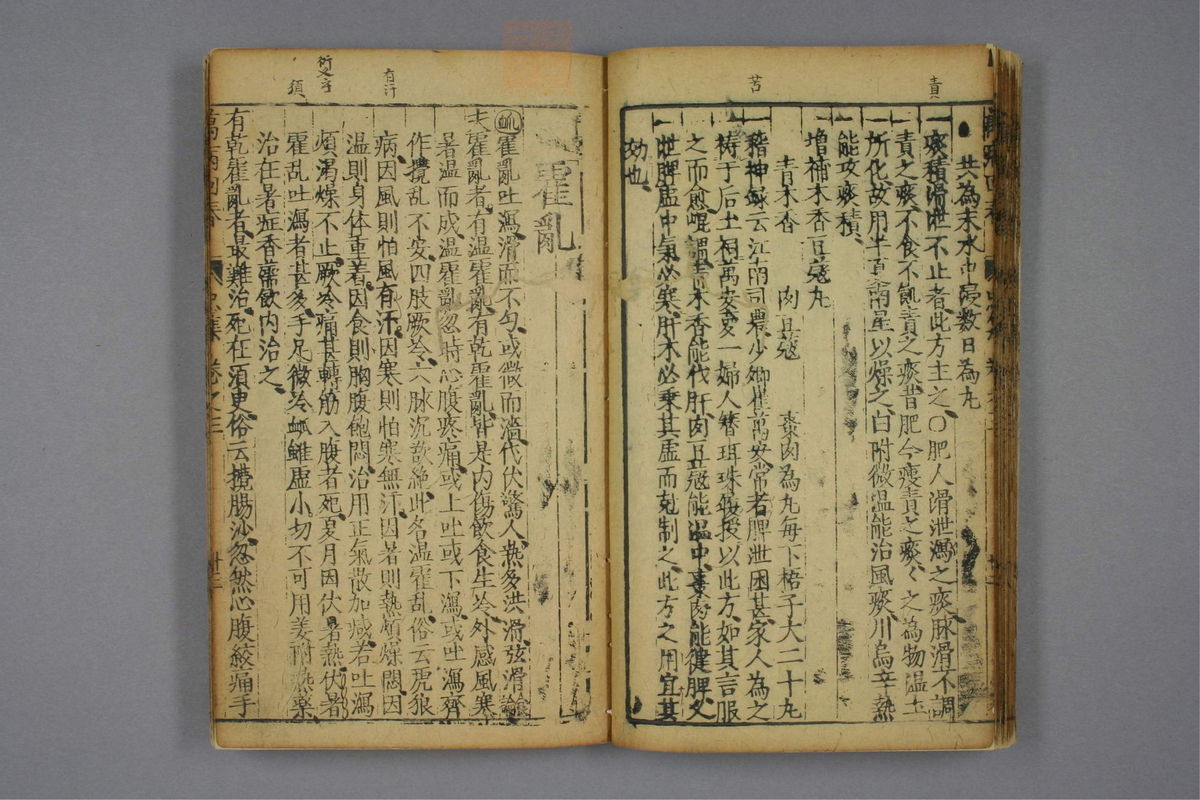 責
苦
共為末水巾浸数日為丸
一痰積滑泄不止者此方主之○肥人滑泄瀉之痰脉滑不調
責之痰不食不飢責之痰昔肥今瘦責之痰々之為物湿土
所化故用半夏南星以燥之白附微温能治風痰川烏辛熱
能攻痰積
增補木香豆蔻丸
青木香 肉豆蔻 棗肉為丸每下梧子大二十丸
一稽神録云江南司農少卿崔萬安常者脾泄困甚家人為之
祷于后土祠萬安夢一婦人簪珥珠履授以此方如其言服
之而愈崐謂青木香能代肝肉豆蔻能温中棗肉能健脾久
泄脾虛中氣必寒肝木必乗其虛而剋制之此方之用宜其
効也
有汗
衍文字
須
霍亂
㕥霍亂吐瀉滑而不匀或微而濇代伏驚人熱多洪滑弦滑論
夫霍亂者有温霍亂有乾霍亂皆是内傷飲食生冷外感風寒
暑温而成温霍亂忽時心腹疼痛或上吐或下瀉或吐瀉齊
作攪乱不安四肢厥冷六脉沉欲絶此名温霍乱俗云虎狼
病因風則怕風有汗因寒則怕寒無汗因暑則熱煩燥悶因
温則身体重着因食則胸腹飽悶治用正氣散加減若吐瀉
煩渴燥不止厥冷痛甚轉筋入腹者死夏月因伏暑熱伏暑
霍乱吐瀉者甚多手足微冷脉雖虛小切不可用姜附熱藥
治在暑症香薷飲内治之
有乾霍亂者最難治死在須臾俗云攪腸沙忽然心腹絞痛手
萬病回春 卷之三 廿三